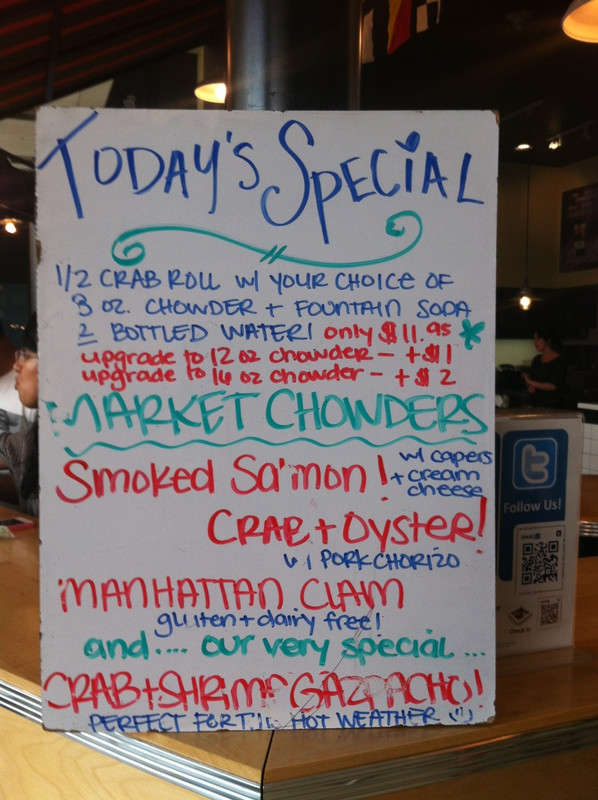 TODAY'S SPECIAL
1/2 CRAB ROLL W/ YOUR CHOICE OF
8 OZ. CHOWDER + FOUNTAIN SODA
2 BOTTLED WATER! only $11.95 *
upgrade to 12 oz chowder - +$1
upgrade to 16 oz chowder - +$2
MARKET CHOWDERS
Smoked Sa'mon! w/ capers
+ cream
cheese
CRAB + Oyster!
w/ PORK CHORIZO
MANHATTAN CLAM
gluten + dairy free!
and.... our very special ...
CRAB + SHRIMP GAZPACHO!
PERFECT FOR THE HOT WEATHER
Follow Us!
Check in